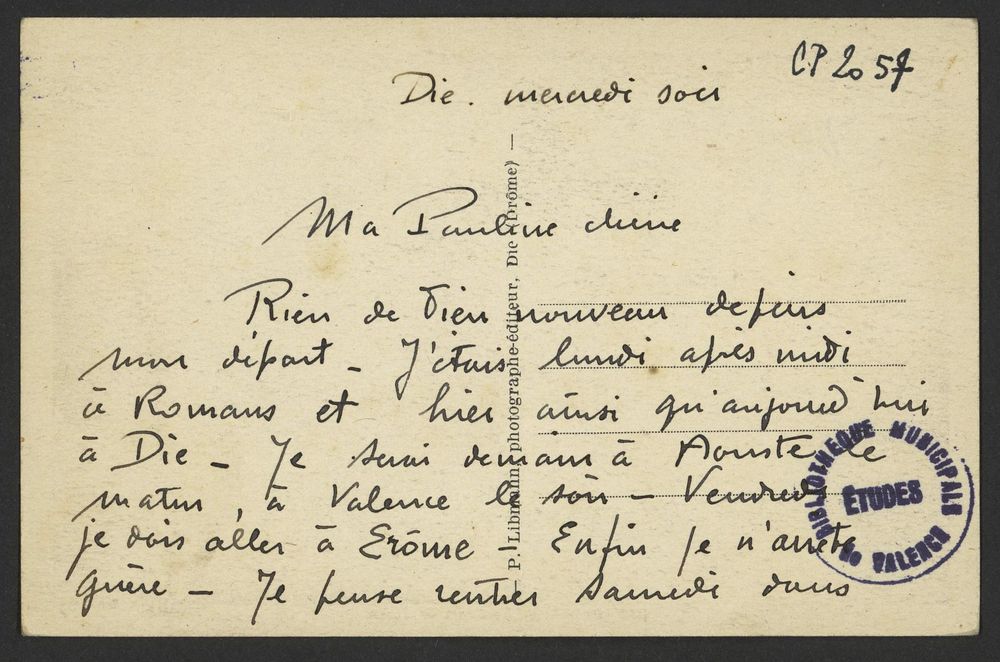 CP 2057
Die. mercredi soir
Ma Pauline chérie
Rien de bien nouveau depuis
mon départ - J'étais lundi après midi
à Romans et hier ainsi qu'aujourd'hui
à Die - Je serai demain à Aouste le
matin, à Valence le soir - Vendredi
je dois aller à Erôme - Enfin je n'arrête
guère - Je pense rentrer Samedi dans
P. Libmann, photographe-éditeur, Die (Drôme) —
BIBLIOTHÈQUE MUNICIPALE
ÉTUDES
DE VALENCE